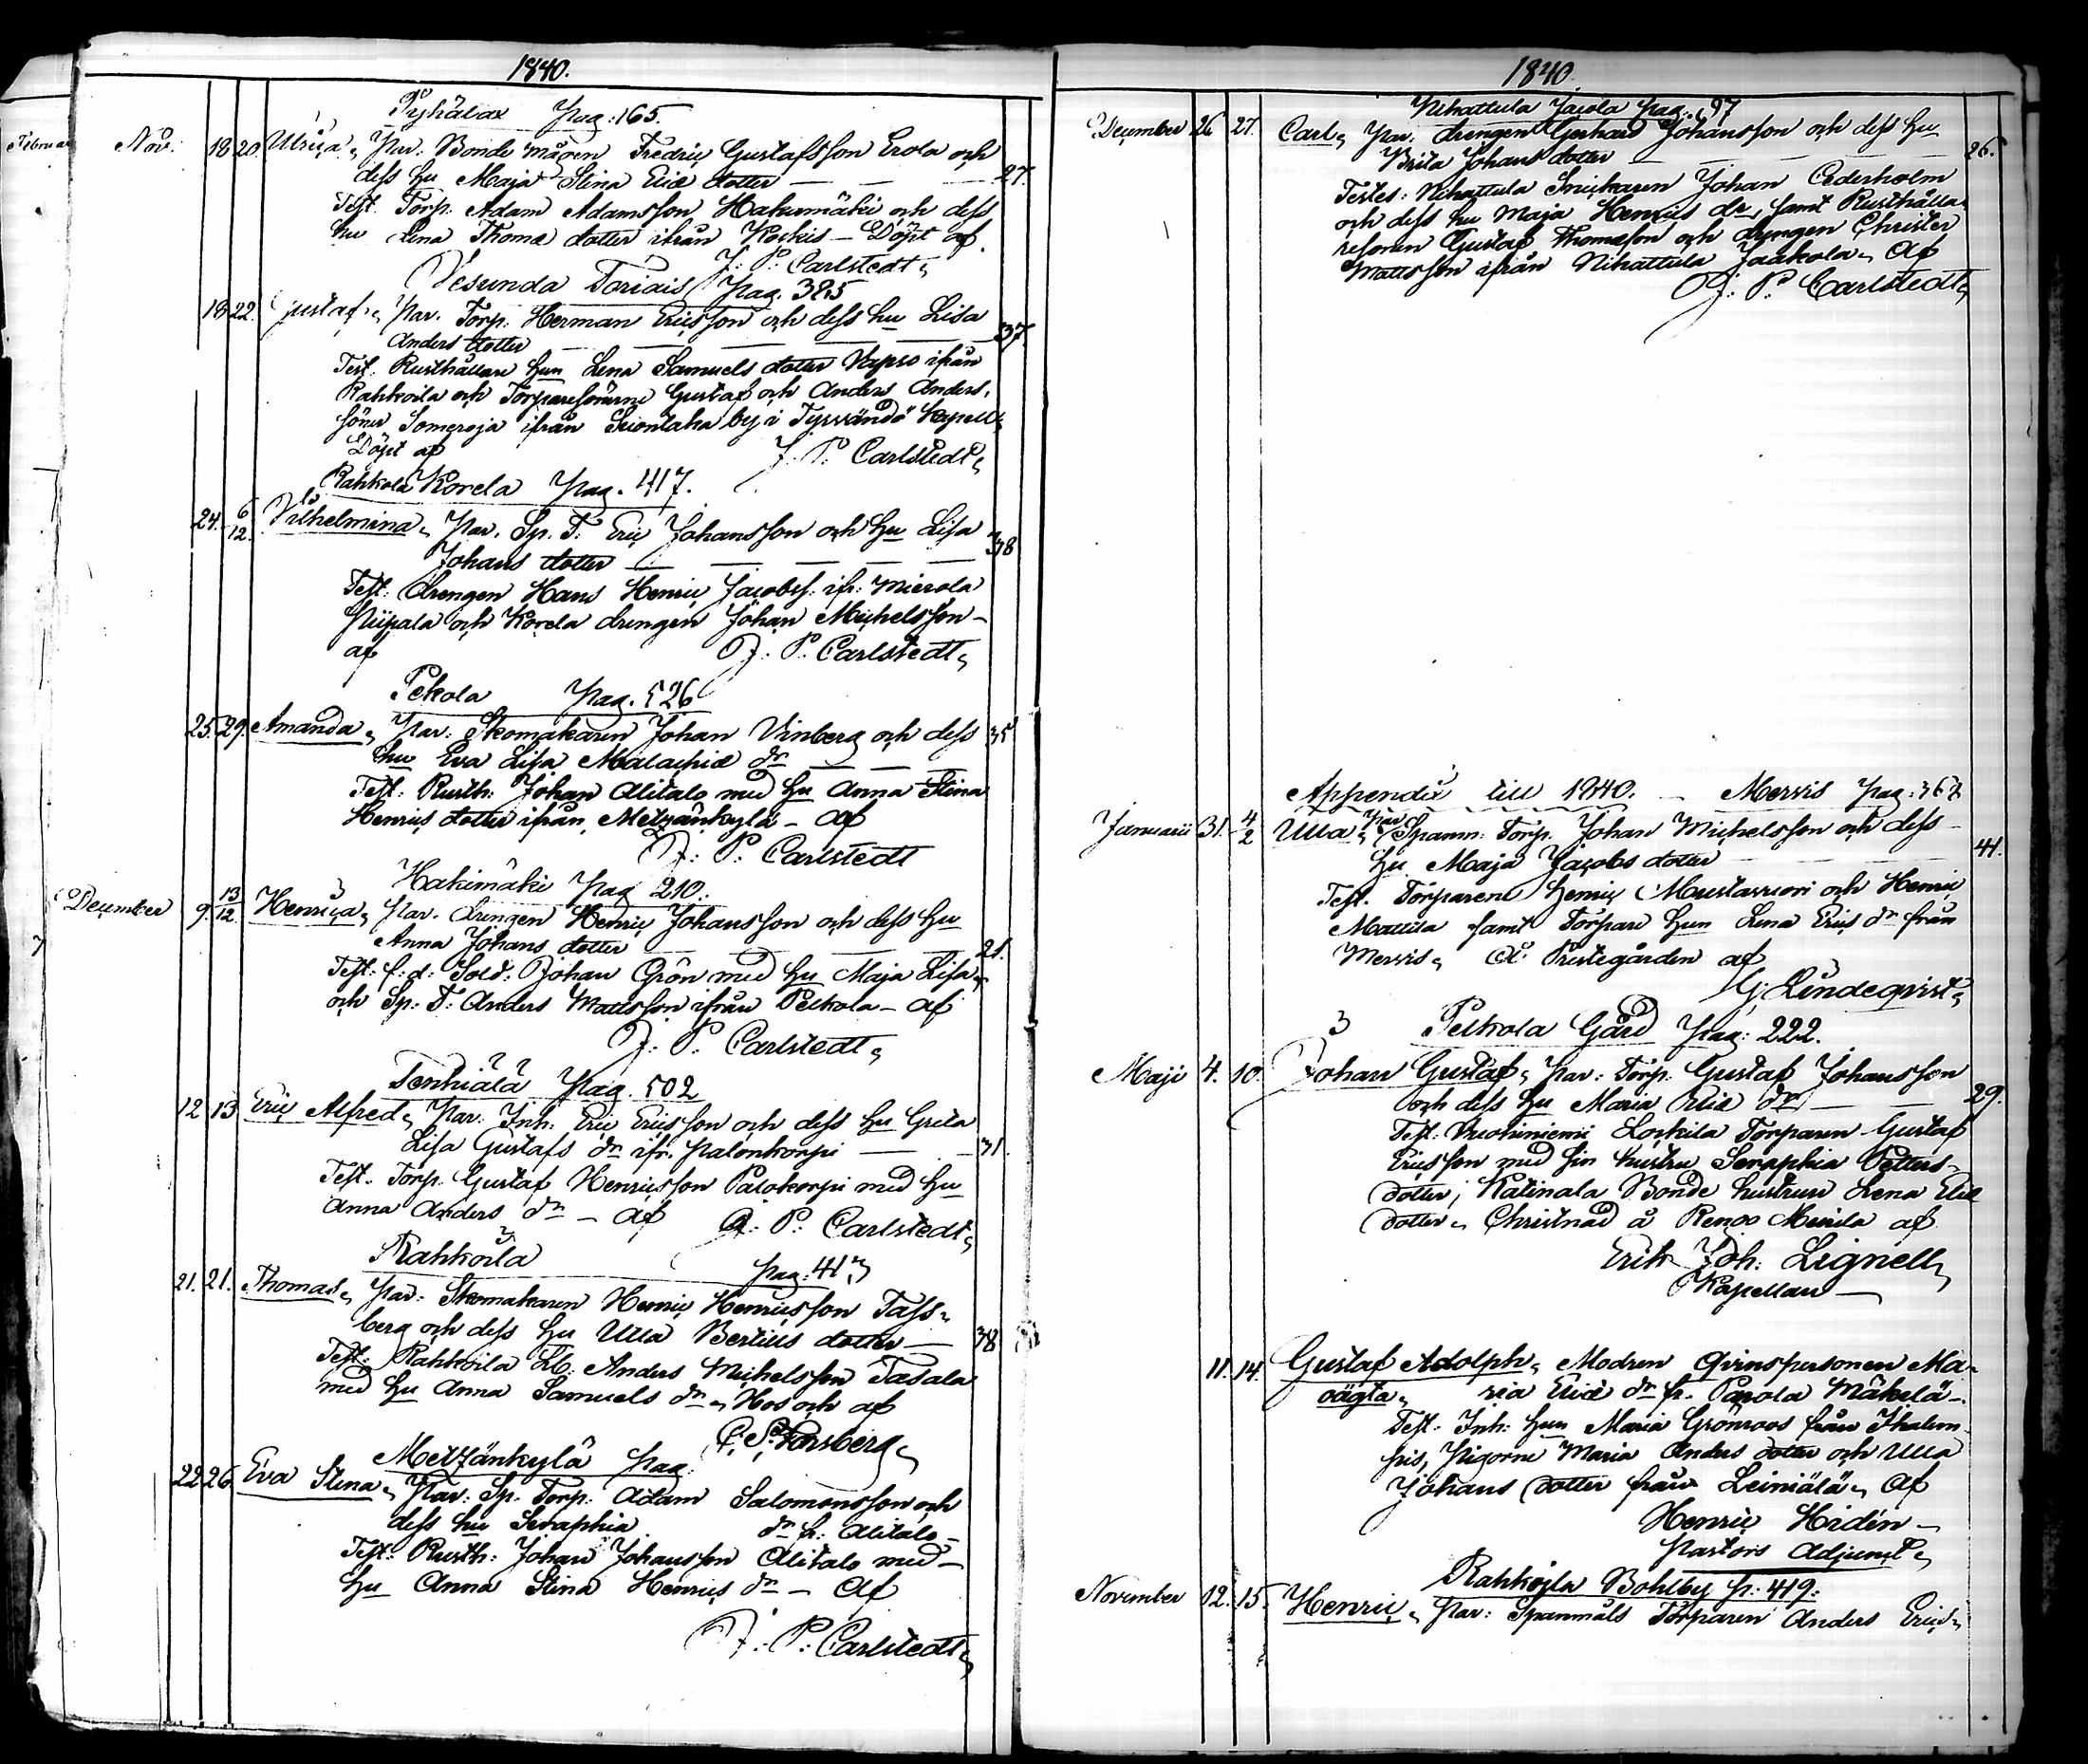 1840.
Februari
Pyhälax pag: 165.
Nov: 18 20 Ulrica, Par. Bonde mågen Fredric Gustafsson Erola och
dess hu Maja Stina Erics dotter — — — 27.
Test. Torp. Adam Adamsson Hakumäki och dess
hu Lena Thomæ dotter ifrån Koskis — Döpt af
J. P. Carlstedt,
Vesunda Toriais Pag. 385
18 22. Gustaf, Par. Torp. Herman Ericsson och dess hu Lisa 37.
Anders dotter — — —
Test. Rusthållare hun Lena Samuels dotter ifrån
Rahkoila och Torparesönerne Gustaf och Anders Anders,
söner Someroja ifrån by i Tyrvändö Kapell,
Döpt af J. P. Carlstedt,
Rahkola Korela pag. 417.
24. 6/12. Vilhelmina, Par. Sp. T. Eric Johansson och hu Lisa 38
Johans dotter — — — —
Test: drengen Hans Henric Jacobss. ifr: Mierola
Piipala och Korela drengen Johan Michelsson —
af J: P: Carlstedt,
Pekola Pag. 526
25. 29. Amanda, Par: Skomakaren Johan Vinberg och dess 35
hu Eva Lisa Malachiæ dr — — —
Test: Rusth: Johan Alitalo med hu Anna Stina
Henrics dotter ifrån Metzänkylä — af
J: P: Carlstedt
Hakimäki Pag 210.
December 9. 13/12. Henrica, Par. drengen Henric Johansson och dess hu
Anna Johans dotter — — — 21.
Test: f: d: Sold: Johan Grön med hu Maja Lisa,
och Sp: T: Anders Mattsson ifrån Pelkola — af
J. P. Carlstedt,
Tenhiälä Pag. 502
12 13 Eric Alfred, Par: Inh: Eric Ericsson och dess hu Greta
Lisa Gustafs dr ifr. Palonkorpi — — 31.
Test. Torp. Gustaf Henricsson Palokorpi med hu
Anna Anders dr — af J: P: Carlstedt,
Rahkoila pag: 413
21. 21. Thomas, Par: Skomakaren Henric Henricsson Tass-
berg och dess hu Ulla Bertils dotter — 38
Test: Rahkoila Lb: Anders Michelsson Tasala
med hu Anna Samuels dr, Hos och af
Forsberg,
Metzänkylä Pag.
22 26 Eva Stina, Par: Sp. Torp: Adam Salomonsson och
dess hu Seraphia dr fr: Alitalo —
Test: Rusth: Johan Johansson Alitalo med —
hu Anna Stina Henrics dr — af
J. P: Carlstedt,
1840.
Nihattula Jacola pag. 97
December 26 27. Carl, Par. drengen Gerhard Johansson och dess hu
Brita Johans dotter — — — 26.
Testes: Nihattula Snickaren Johan Cederholm
och dess hu Maja Henrics dr, samt Rusthålla-
resonen Gustaf Thomæson och drengen Christer
Mattsson ifrån Nihattula Jaakola, af
J: P: Carlstedt,
Appendix till 1840. — Mervis Pag: 367
Januarii 31. 4/2 Ulla, Par: Spanm: Torp. Johan Michelsson och dess —
hu Maja Jacobs dotter — — — 41.
Test. Torparene Henric Mustavuori och Henric
Mattila samt Torpare hun Lena Erics dr från
Mervis, å Prestegården af
G: Lindeqvist,
3 Pelkola Gård Pag: 222.
Maji 4. 10. Johan Gustaf, Par: Torp. Gustaf Johansson
och dess hu Maria Eliæ dr — — 29.
Test: Vuohiniemi Torparen Gustaf
Ericsson med sin hustru Seraphia Petters-
dotter, Katinala Bonde hustrun Lena Eliæ
dotter, Christnad å Rengo af
Erik Joh: Lignell,
Kapellan —
11. 14. Gustaf Adolph, Modren Qvinspersonen Ma-
oägta, ria Ericæ dr fr. Parola Mäkelä —
Test: Inh: hun Maria Grönroos från
Pigorne Maria Anders dotter och Ulla
Johans dotter från Leiniälä, af
Henric Hidén —
Pastors Adjunct,
Rahkoila Bohlby P: 419:
November 12. 15. Henric, Par: Spanmåls Torparen Anders Eric-